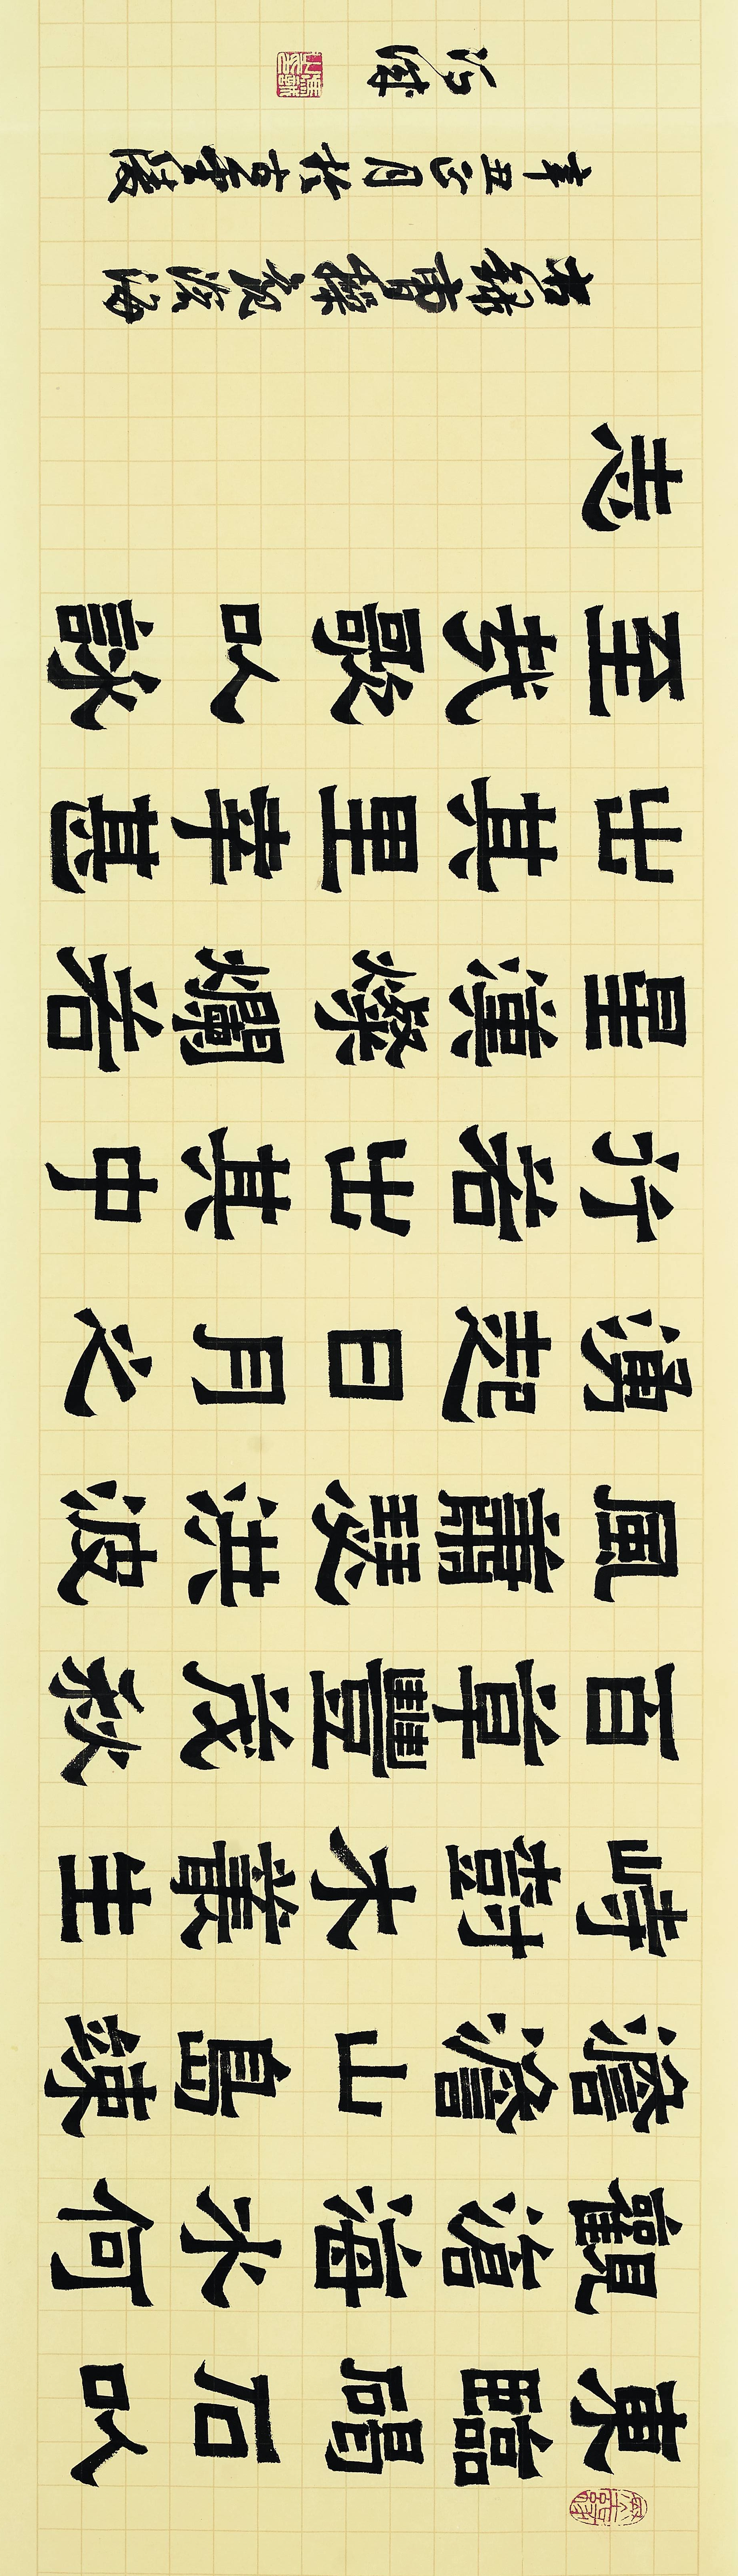 東臨碣石以
觀滄海水何
澹澹山島竦
峙樹木叢生
百草豐茂秋
風蕭瑟洪波
湧起日月之
行若出其中
星漢燦爛若
出其里幸甚
至哉歌以詠
志
右錄曹操觀滄海
辛丑正月於古金陵